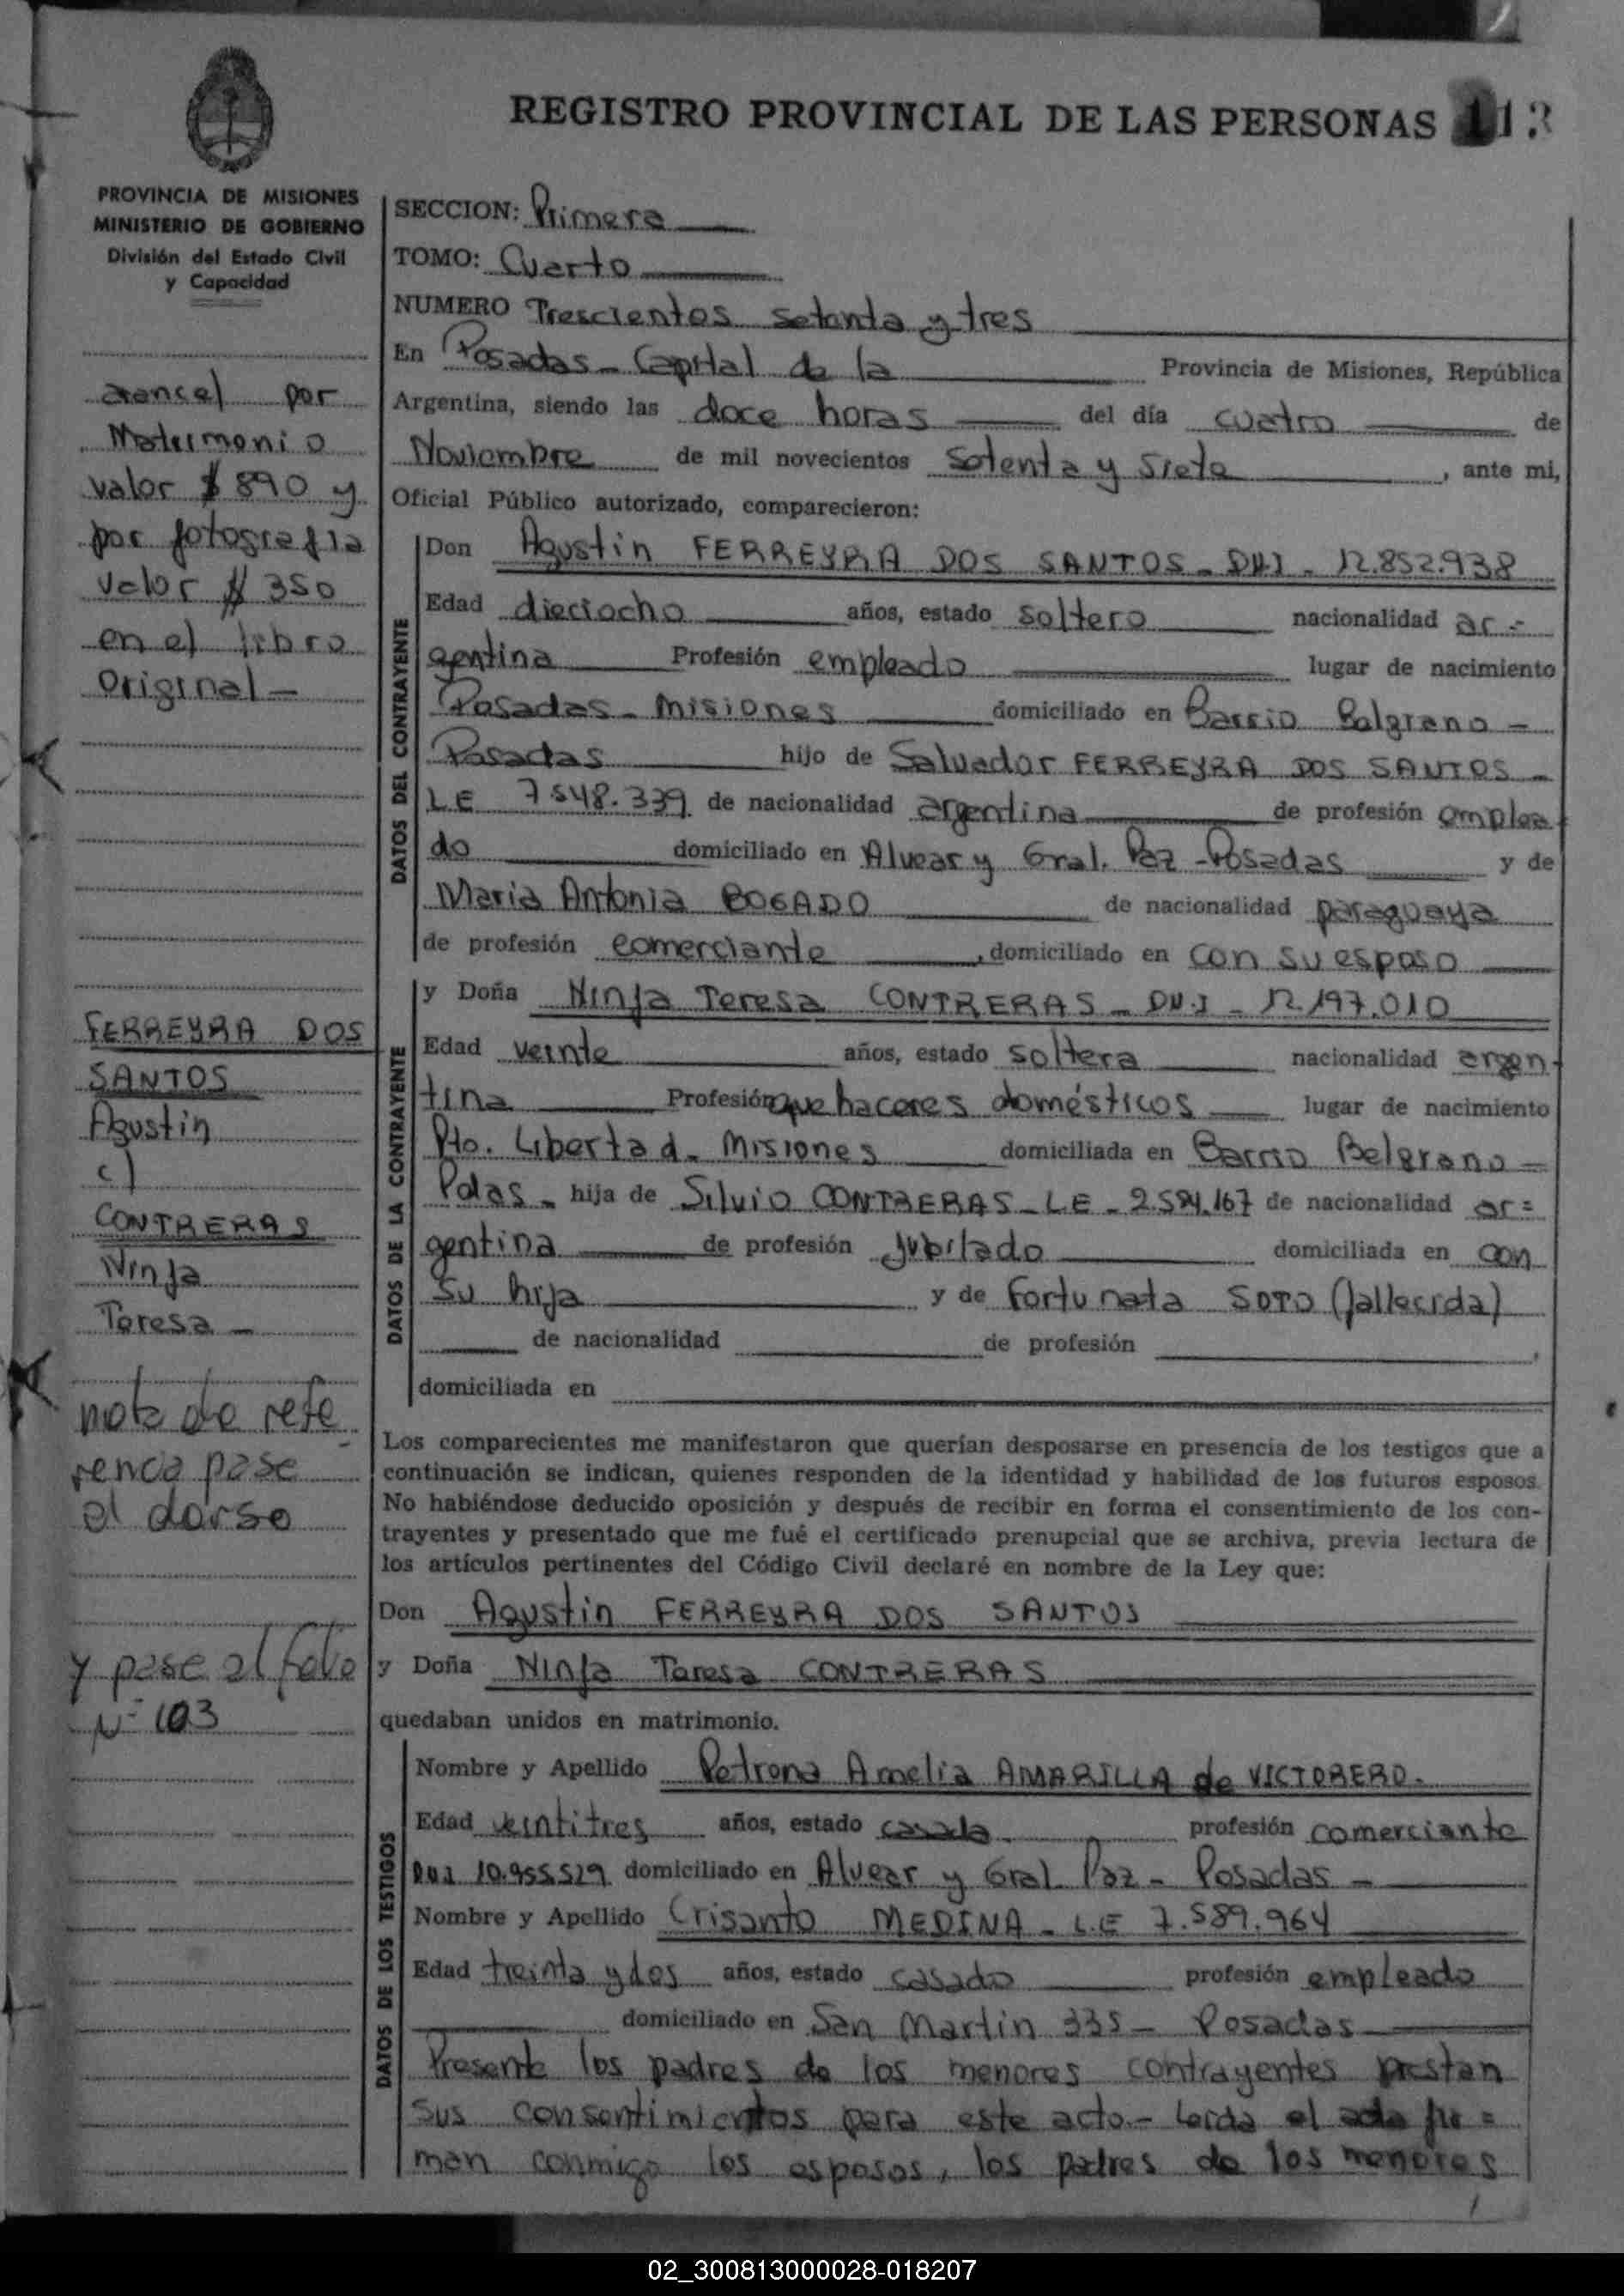 REGISTRO PROVINCIAL DE LAS PERSONAS 113
PROVINCIA DE MISIONES
MINISTERIO DE GOBIERNO
División del Estado Civil
y Capacidad
arancel por
Matrimonio
valor $ 890 y
por fotografia
valor $ 350
en el libro
original -
FERREYRA DOS
SANTOS
Agustin
c/
CONTRERAS
Ninfa
Teresa -
nota de refe
rencia pase
al dorso
y pase al folio
Nº 103
SECCION: Primera
TOMO: Cuarto
NUMERO Trescientos setenta y tres
En Posadas - Capital de la Provincia de Misiones, República
Argentina, siendo las doce horas del día cuatro de
Noviembre de mil novecientos setenta y siete, ante mi,
Oficial Público autorizado, comparecieron:
DATOS DEL CONTRAYENTE
Don Agustin FERREYRA DOS SANTOS - DNI - 12.852.938
Edad dieciocho años, estado soltero nacionalidad ar -
gentina Profesión empleado lugar de nacimiento
Posadas - Misiones domiciliado en Barrio Belgrano -
Posadas hijo de Salvador FERREYRA DOS SANTOS -
LE 7548.339 de nacionalidad argentina de profesión emplea
do domiciliado en Alvear y Gral. Paz - Posadas y de
Maria Antonia BOGADO de nacionalidad paraguaya
de profesión comerciante, domiciliado en con su esposo
DATOS DE LA CONTRAYENTE
y Doña Ninfa Teresa CONTRERAS - DN.I - 12.197.010
Edad veinte años, estado soltera nacionalidad argen-
tina Profesión quehaceres domésticos lugar de nacimiento
Pto. Libertad - Misiones domiciliada en Barrio Belgrano -
Pdas - hija de Silvio CONTRERAS - LE - 2.584.167 de nacionalidad ar=
gentina de profesión Jubilado domiciliada en con
su hija y de Fortunata SOTO (fallecida)
de nacionalidad de profesión ,
domiciliada en
Los comparecientes me manifestaron que querían desposarse en presencia de los testigos que a
continuación se indican, quienes responden de la identidad y habilidad de los futuros esposos.
No habiéndose deducido oposición y después de recibir en forma el consentimiento de los con-
trayentes y presentado que me fué el certificado prenupcial que se archiva, previa lectura de
los artículos pertinentes del Código Civil declaré en nombre de la Ley que:
Don Agustin FERREYRA DOS SANTOS
y Doña Ninfa Teresa CONTRERAS
quedaban unidos en matrimonio.
DATOS DE LOS TESTIGOS
Nombre y Apellido Petrona Amelia AMARILLA de VICTORERO.
Edad veintitres años, estado casada profesión comerciante
DNI 10.955.529 domiciliado en Alvear y Gral Paz - Posadas -
Nombre y Apellido Crisanto MEDINA - L.E 7.589.964
Edad treinta y dos años, estado casado profesión empleado
domiciliado en San Martin 335 - Posadas
Presente los padres de los menores contrayentes prestan
sus consentimientos para este acto - Leida el acta fir =
man conmigo los esposos, los padres de los menores
02_300813000028-018207